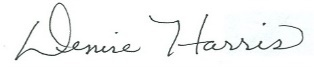 Denise Harris